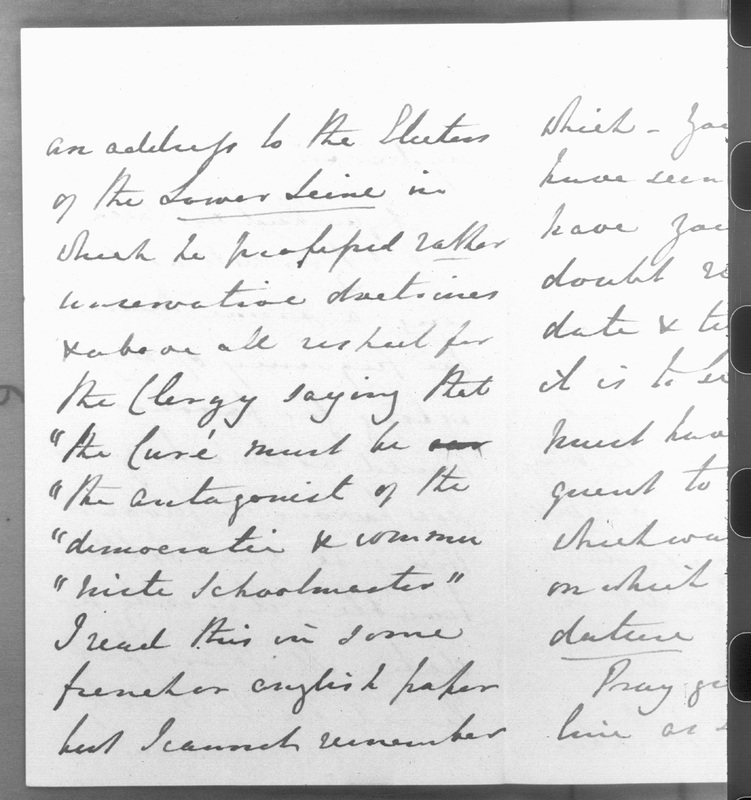 an address to the Electors
of the Lower Seine in
which he professed rather
conservative doctrines
& above all respect for
the Clergy saying that
"the Curé must be
"the antagonist of the
"democratic & commu
"niste Schoolmaster"
I read this in some
french or english paper
but I cannot remember
which - you
have seen
have you
doubt
date &
it is to be
must have
quent to
which was
on which
dature
Pray
line as